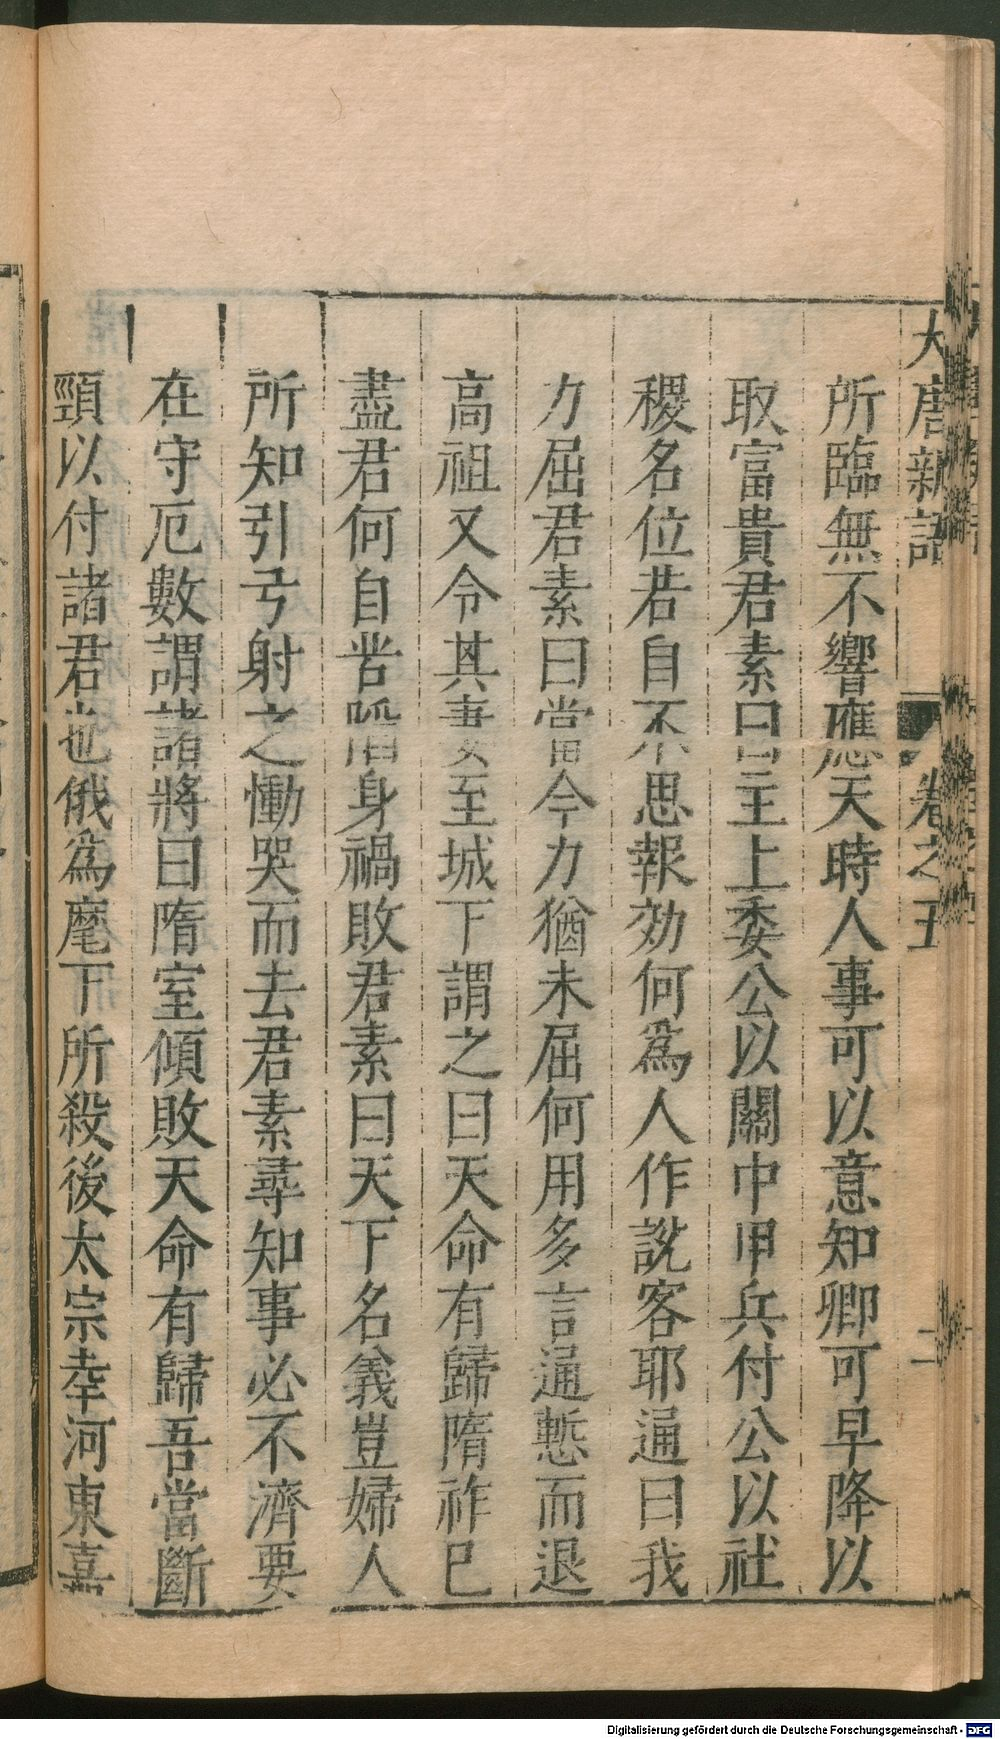 大唐新語 卷之五 二
所臨無不響應天時人事可以意知卿可早降以
取富貴君素曰主上委公以關中甲兵付公以社
稷名位若自不思報効何爲人作說客耶通曰我
力屈君素曰當今力猶未屈何用多言通慙而退
高祖又令其妻至城下謂之曰天命有歸隋祚已
盡君何自苦䧟身禍敗君素曰天下名義豈婦人
所知引弓射之慟哭而去君素尋知事必不濟要
在守厄數謂諸將曰隋室傾敗天命有歸吾當斷
頸以付諸君也俄爲麾下所殺後太宗幸河東嘉
Digitalisierung gefördert durch die Deutsche Forschungsgemeinschaft - DFG